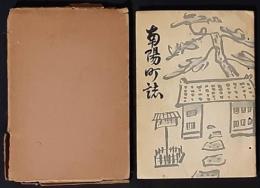 南陽町誌